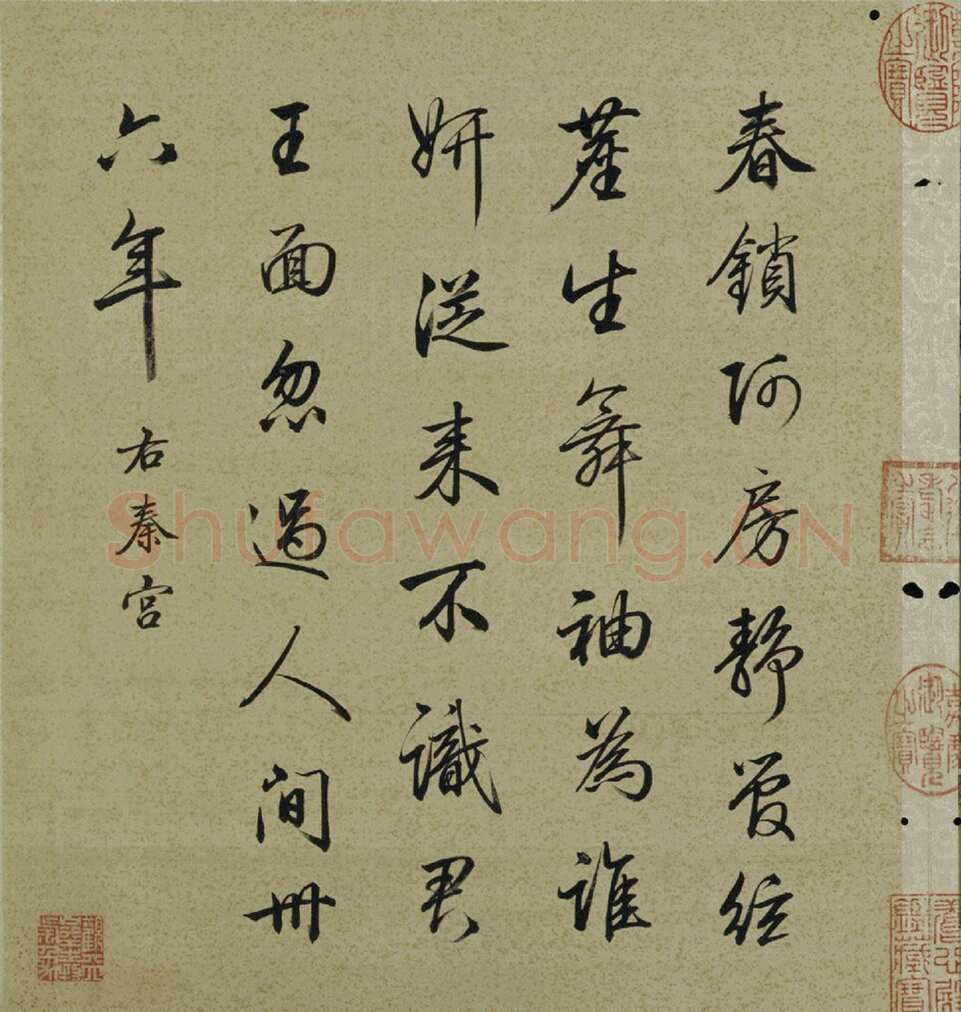 春鎖阿房靜管絃
塵生舞袖為誰
妍從来不識君
王面忽過人間卅
六年 右秦宮
Shufawang.CN
嘉慶御覽之寶